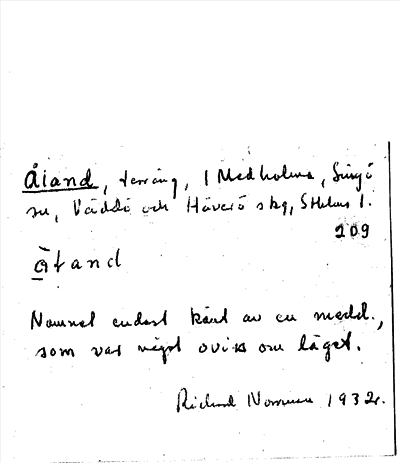 Åland, terräng, 1 Medholma, Singö
sn, Väddö och Häverö skg, Sthlms l.
209
åtand
Namnet endast känt av en medd.,
som var något oviss om läget.
Richard Norrman 1932.